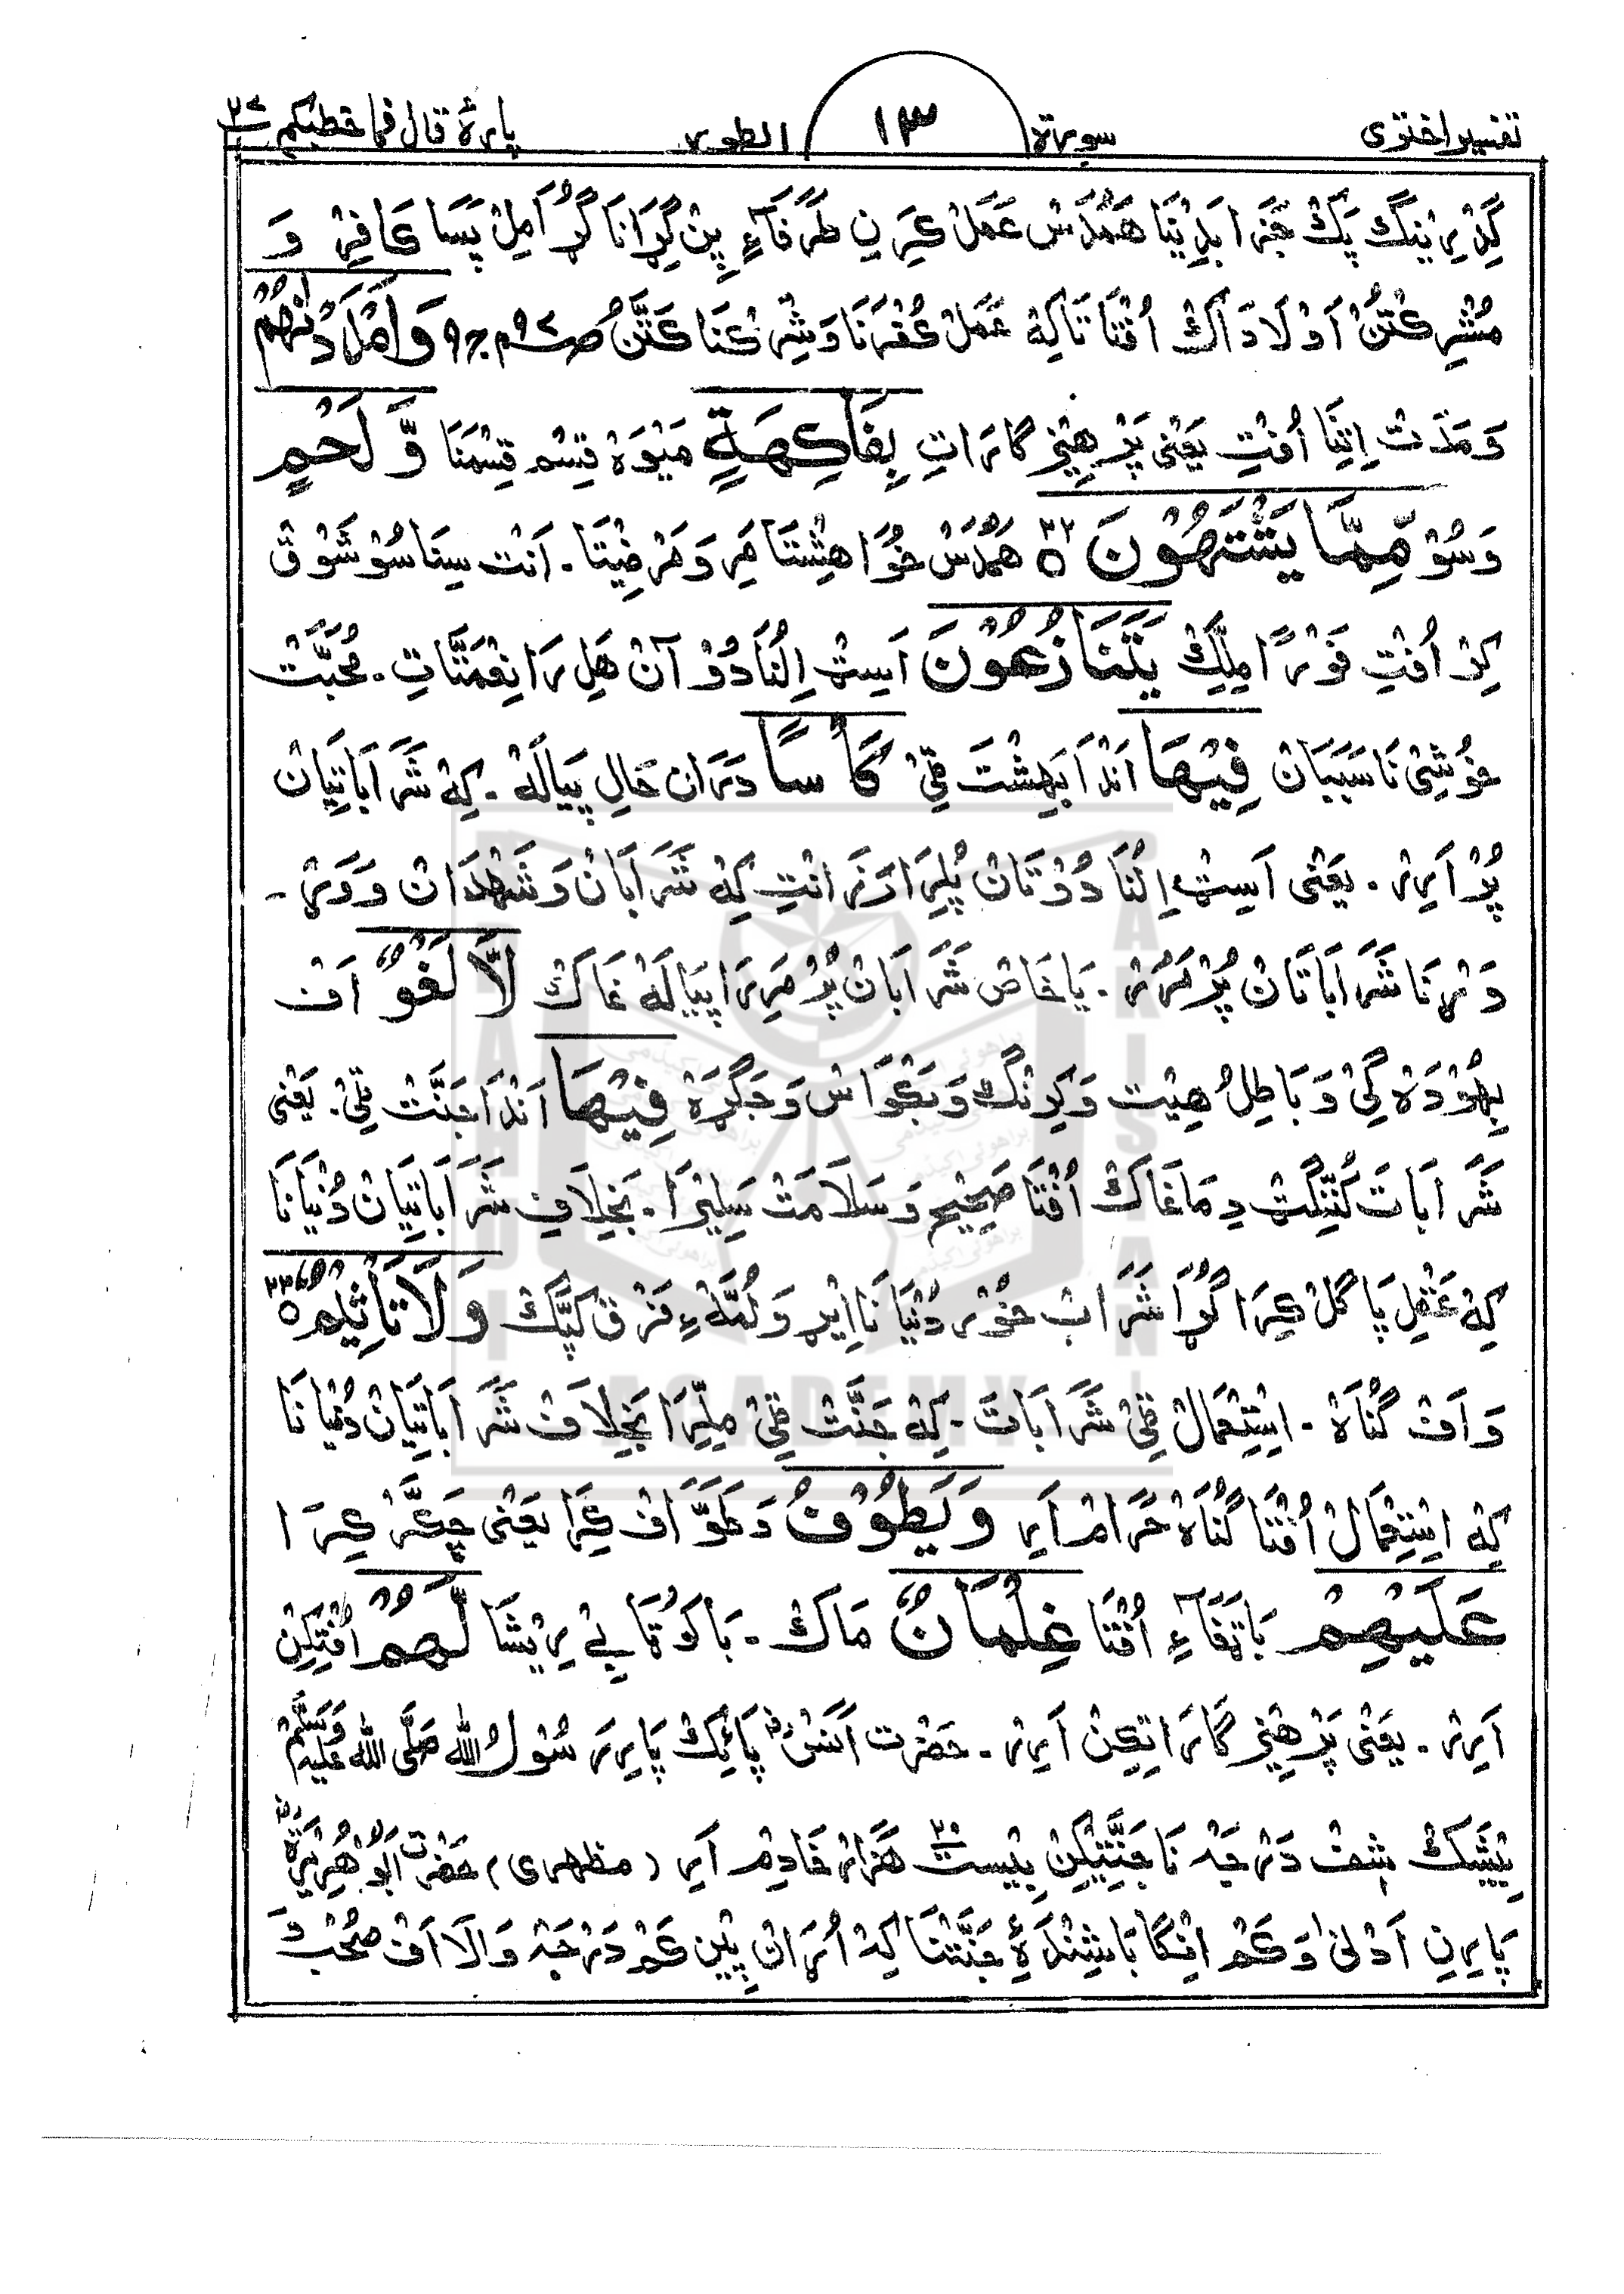 تفسیر اختری سورة ١٣ الطور پارۀ قال فما خطبکم ٢٧
گِدْرِیْنِگ یَک جَزَا بَدِیْنَا هَمُدَسْ عَمَلْ کرِنِ طَرْفَاءِ پِنْ گِرَانَا گُڑا مِلْ پَسَا کَافِرْ وَ
مُشْرِکَتَنْ اَوْلَادَاکْ اُفْتَا تَاکِہْ عَمَلْ کُفْرَنَا وَشِرْکْنَا کَتَّنُ وَاَمْدَدْنٰهُمْ
وَمَدَتْ اِتِنَّا اُفْتِ یَعْنِی پَرْهِیْزِ گَارَاتِ بِفَاکِهَةٍ مَیْوَہْ قِسْمْ قِسْمَنَا وَّلَحْمٍ
وَسُوْ مِّمَّا یَشْتَهُوْنَ ٢٢ هَمُدَسْ خُوَاهِشْتَا مِرِ وَمَرْضِیْتَا۔ اَنْتْ سِنَا سُوْ شَوْقْ
کِرْ اُفْتِ فَوْرًا مِلِّکْ یَتَنَازَعُوْنَ اَسِٹْ اِلْنَا دُوْآنْ هَلِرَا نِعْمَتَاتِ۔ مُحَبَّتْ
خُوْشِیْ نَا سَبَبَانْ فِیْهَا اَنْدَا بَهِشْتَ قِیْ کَاْسًا دَرَانْ حَالِ پَیَالَہْ۔ کِہْ شَرَابَاتِیَانْ
پُرْ اَرِرْ۔ یَعْنِی اَسِٹْ اِلْنَا دُوْتَانْ پُلِرَا اَنْتِ کِہْ شَرَابَانْ وَشَهْدَانْ وَ
شَرَابَاتَانْ پُرْ مَرَرْ۔ یَا خَاصْ شَرَابَانْ پُرْ مَرِرَا پَیَالَہْ غَاکْ لَّا لَغْوٌ اَفْ
بِیْهُوْدَہْ گِیْ وَبَاطِلُ هِیْتْ وَکِرِنْگْ وَبَکْوَاسْ وَجَگْرَہْ فِیْهَا اَنْدَا جَنَّتْ قِیْ۔ یَعْنِی
شَرَابَاتَ کُنِنْگٹْ دِمَاغَاکْ اُفْتَا صَحِیْحْ وَسَلَامَتْ سَلِیْرَا۔ بَخِلَافِ شَرَابَاتِیَانْ دُنْیَانَا
کِہْ عَقْلِ پَاگَلْ کِرَا گُڑَا شَرَابْ خُوْرْ دُنْیَانَا اِیْڑ وَلُمَّہْءِ فَرْقْ کَپَّکْ وَلَا تَاْثِیْمٌ ٢٣
وَاَفْ گُنَاہْ۔ اِسْتِعْمَالْ قِیْ شَرَابَاتَ۔ کِہْ جَنَّتْ قِیْ مِلِّرَا بَخِلَافْ شَرَابَاتِیَانْ دُنْیَانَا
کِہْ اِسْتِعْمَالْ اُفْتَا گُنَاہْ حَرَامْ اَرِ وَیَطُوْفُ وَطَوَّافْ کِرَا یَعْنِی چَکَّرْ کِرَا
عَلَیْهِمْ بَاتَفَاءِ اُفْتَا غِلْمَانٌ مَاکْ۔ بَاکُوْتَا بِے رِیْشَا لَّهُمْ اُفْتِکِنْ
اَرِرْ۔ یَعْنِی پَرْهِیْزِ گَارَاتِکِنْ اَرِرْ۔ حَضْرَتْ اَنَسْؓ پَائِکْ پَارِرَسُوْلُ اللّٰه صَلَّی اللّٰه عَلَیْه وَسَلَّمْ
بِیْشَکْ شِفْ دَرْجَہْ نَا جَنَّتِیْکِنْ بِیْسْتْ ٢٠ هَزَارْ خَادِمْ اَرِ (مظهری) حَضْرَتْ اَبُوْ هُرَیْرَہْؓ
پَارِنِ اَدْنٰی وَکَمْ اِنْگَا بَاشِنْدَہْءِ جَنَّتْنَا کِہْ اُرَانْ پِنْ کَمْ دَرْجَہْ وَالَا اَفْ صُحْبْ